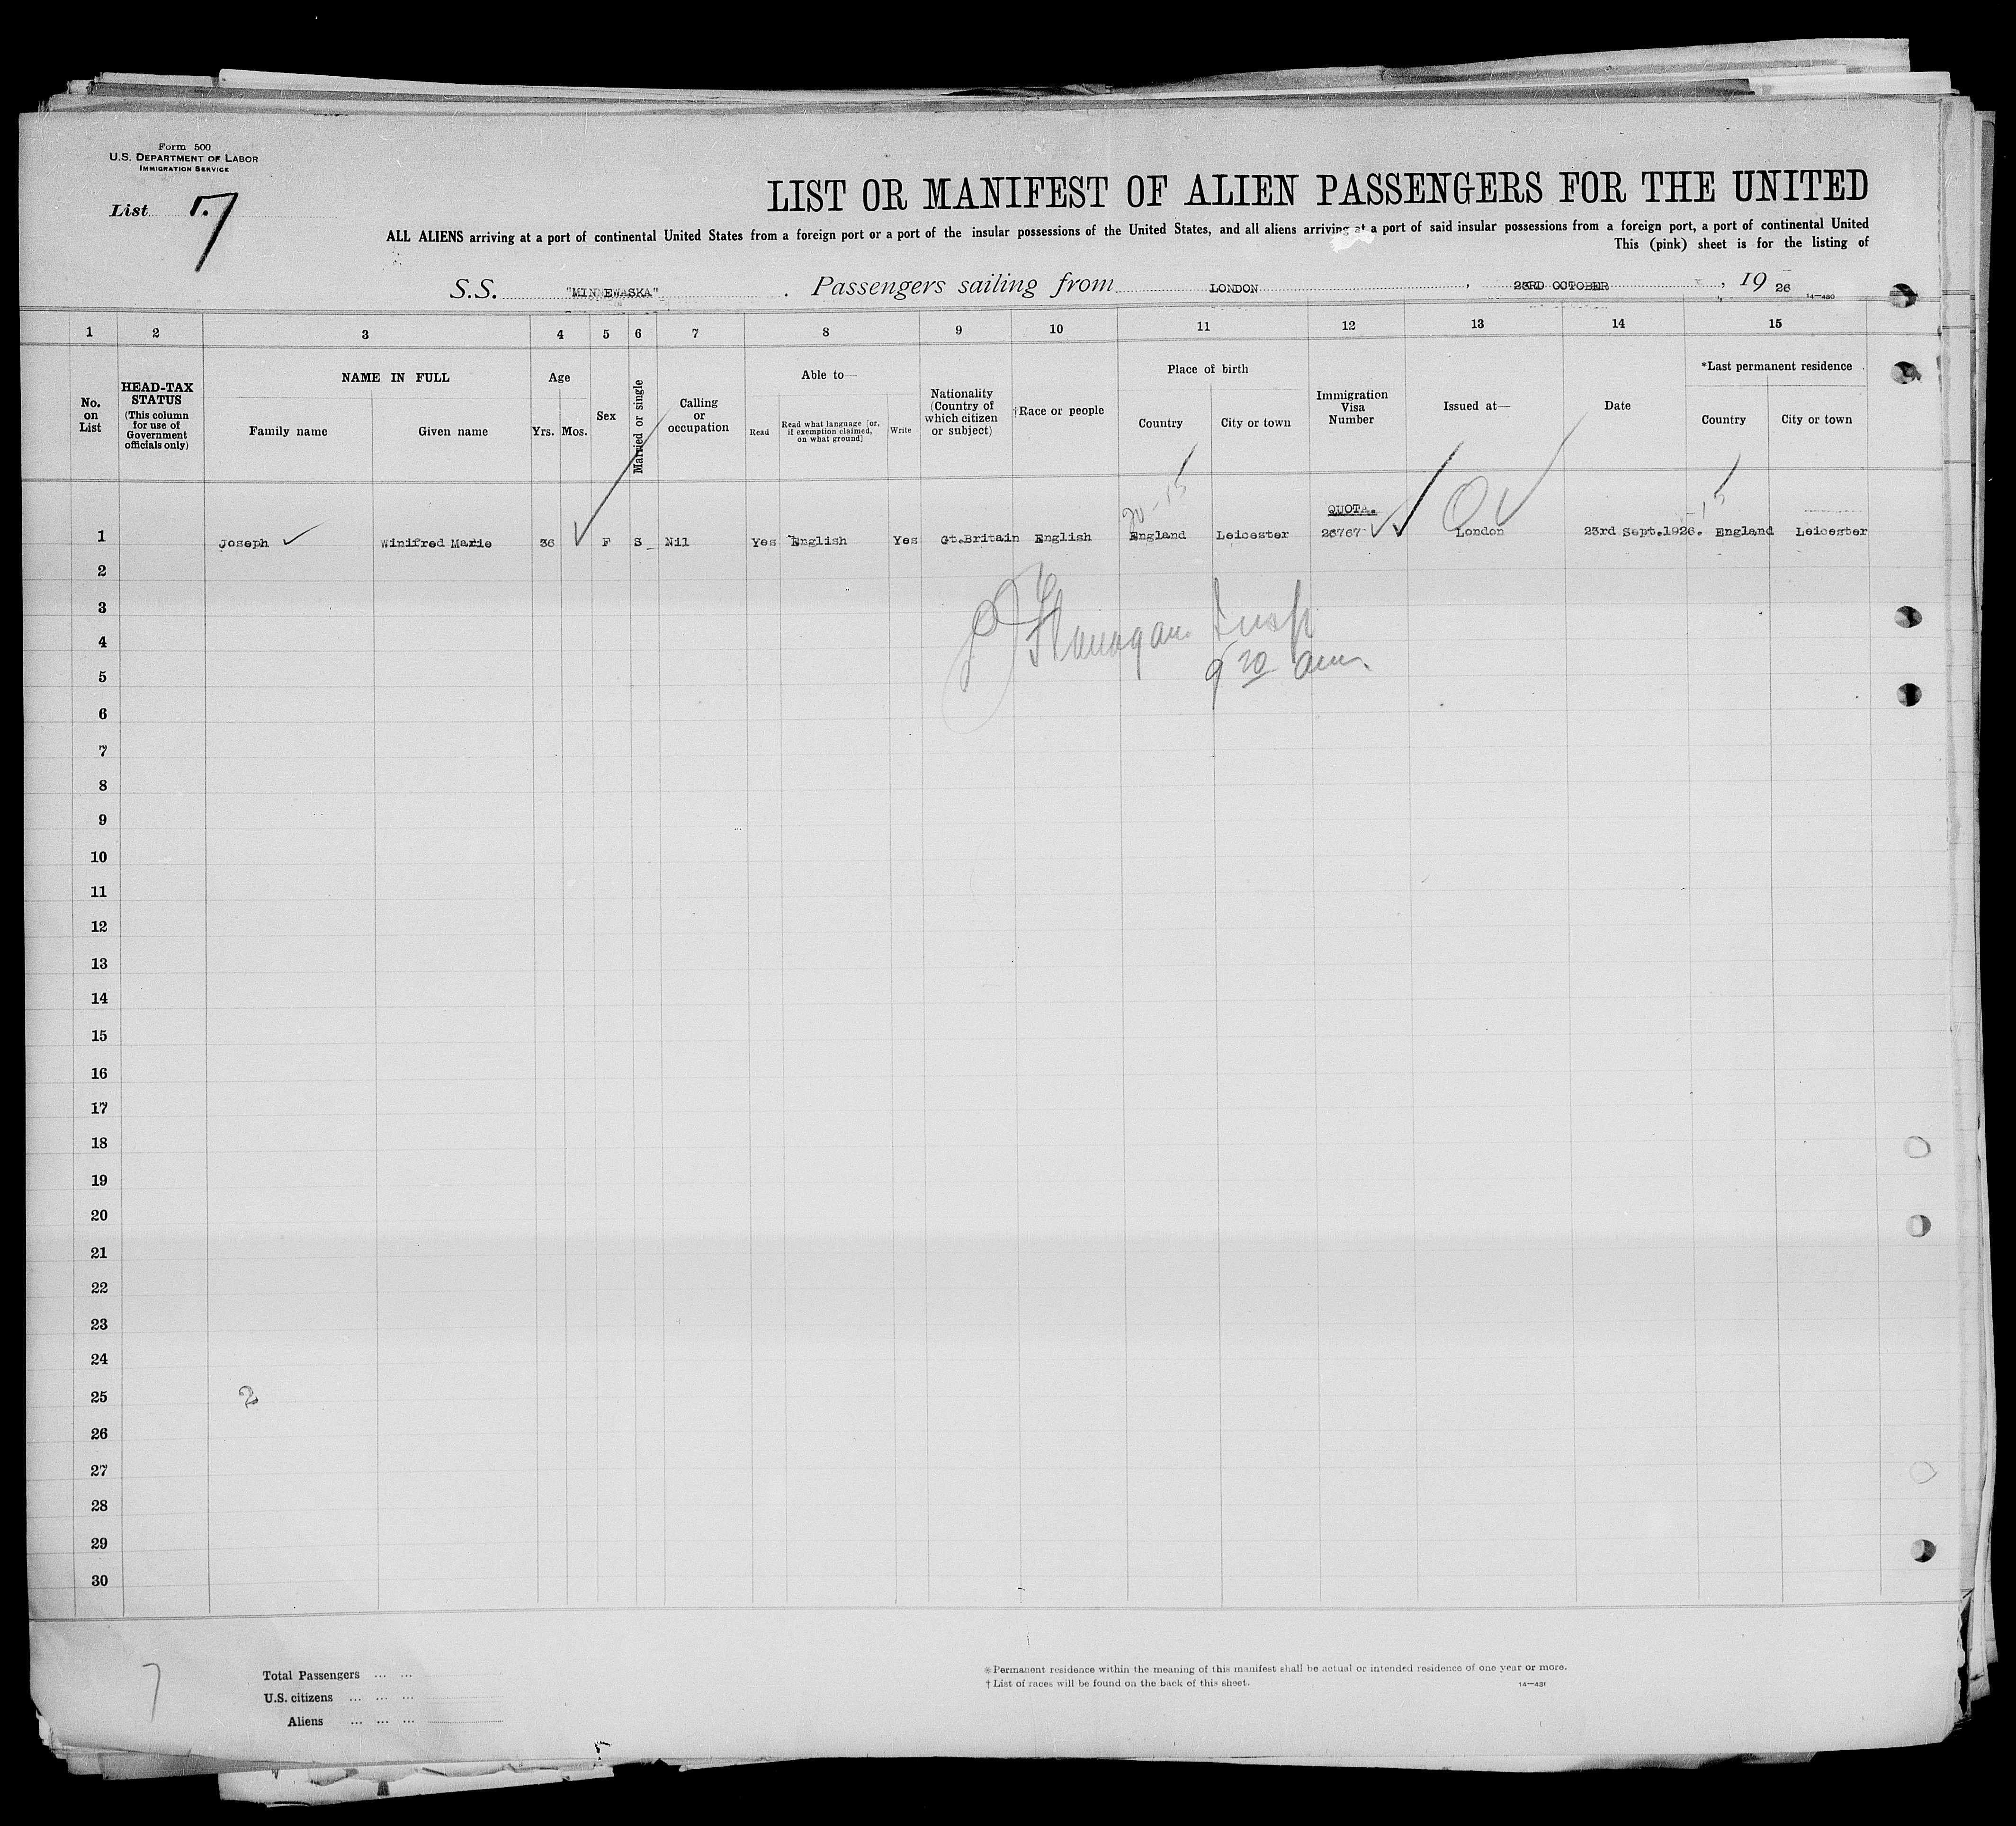 Form 500
U.S. DEPARTMENT OF LABOR
IMMIGRATION SERVICE
List 7
LIST OR MANIFEST OF ALIEN PASSENGERS FOR THE UNITED
ALL ALIENS arriving at a port of continental United States from a foreign port or a port of the insular possessions of the United States, and all aliens arriving at a port of said insular possessions from a foreign port, a port of continental United
This (pink) sheet is for the listing of
S.S. "MINNEWASKA" . Passengers sailing from LONDON , 23RD OCTOBER , 19 26
14—430
1 2 3 4 5 6 7 8 9 10 11 12 13 14 15
No. on List
HEAD-TAX STATUS (This column for use of Government officials only)
NAME IN FULL
Family name Given name
Age
Yrs. Mos.
Sex
Married or single
Calling or occupation
Able to—
Read
Read what language [or, if exemption claimed, on what ground]
Write
Nationality (Country of which citizen or subject)
†Race or people
Place of birth
Country City or town
Immigration Visa Number
Issued at—
Date
*Last permanent residence
Country City or town
20-15
QUOTA.
1 Joseph Winifred Marie 36 F S Nil Yes English Yes Gt.Britain English England Leicester 26767 London 23rd Sept.1926. England Leicester
2
3
Flanagan Insp
4
9 20 am
5
6
7
8
9
10
11
12
13
14
15
16
17
18
19
20
21
22
23
24
25 2
26
27
28
29
30
7
Total Passengers ... ...
U.S. citizens ... ... ...
Aliens ... ... ...
*Permanent residence within the meaning of this manifest shall be actual or intended residence of one year or more.
†List of races will be found on the back of this sheet.
14—431